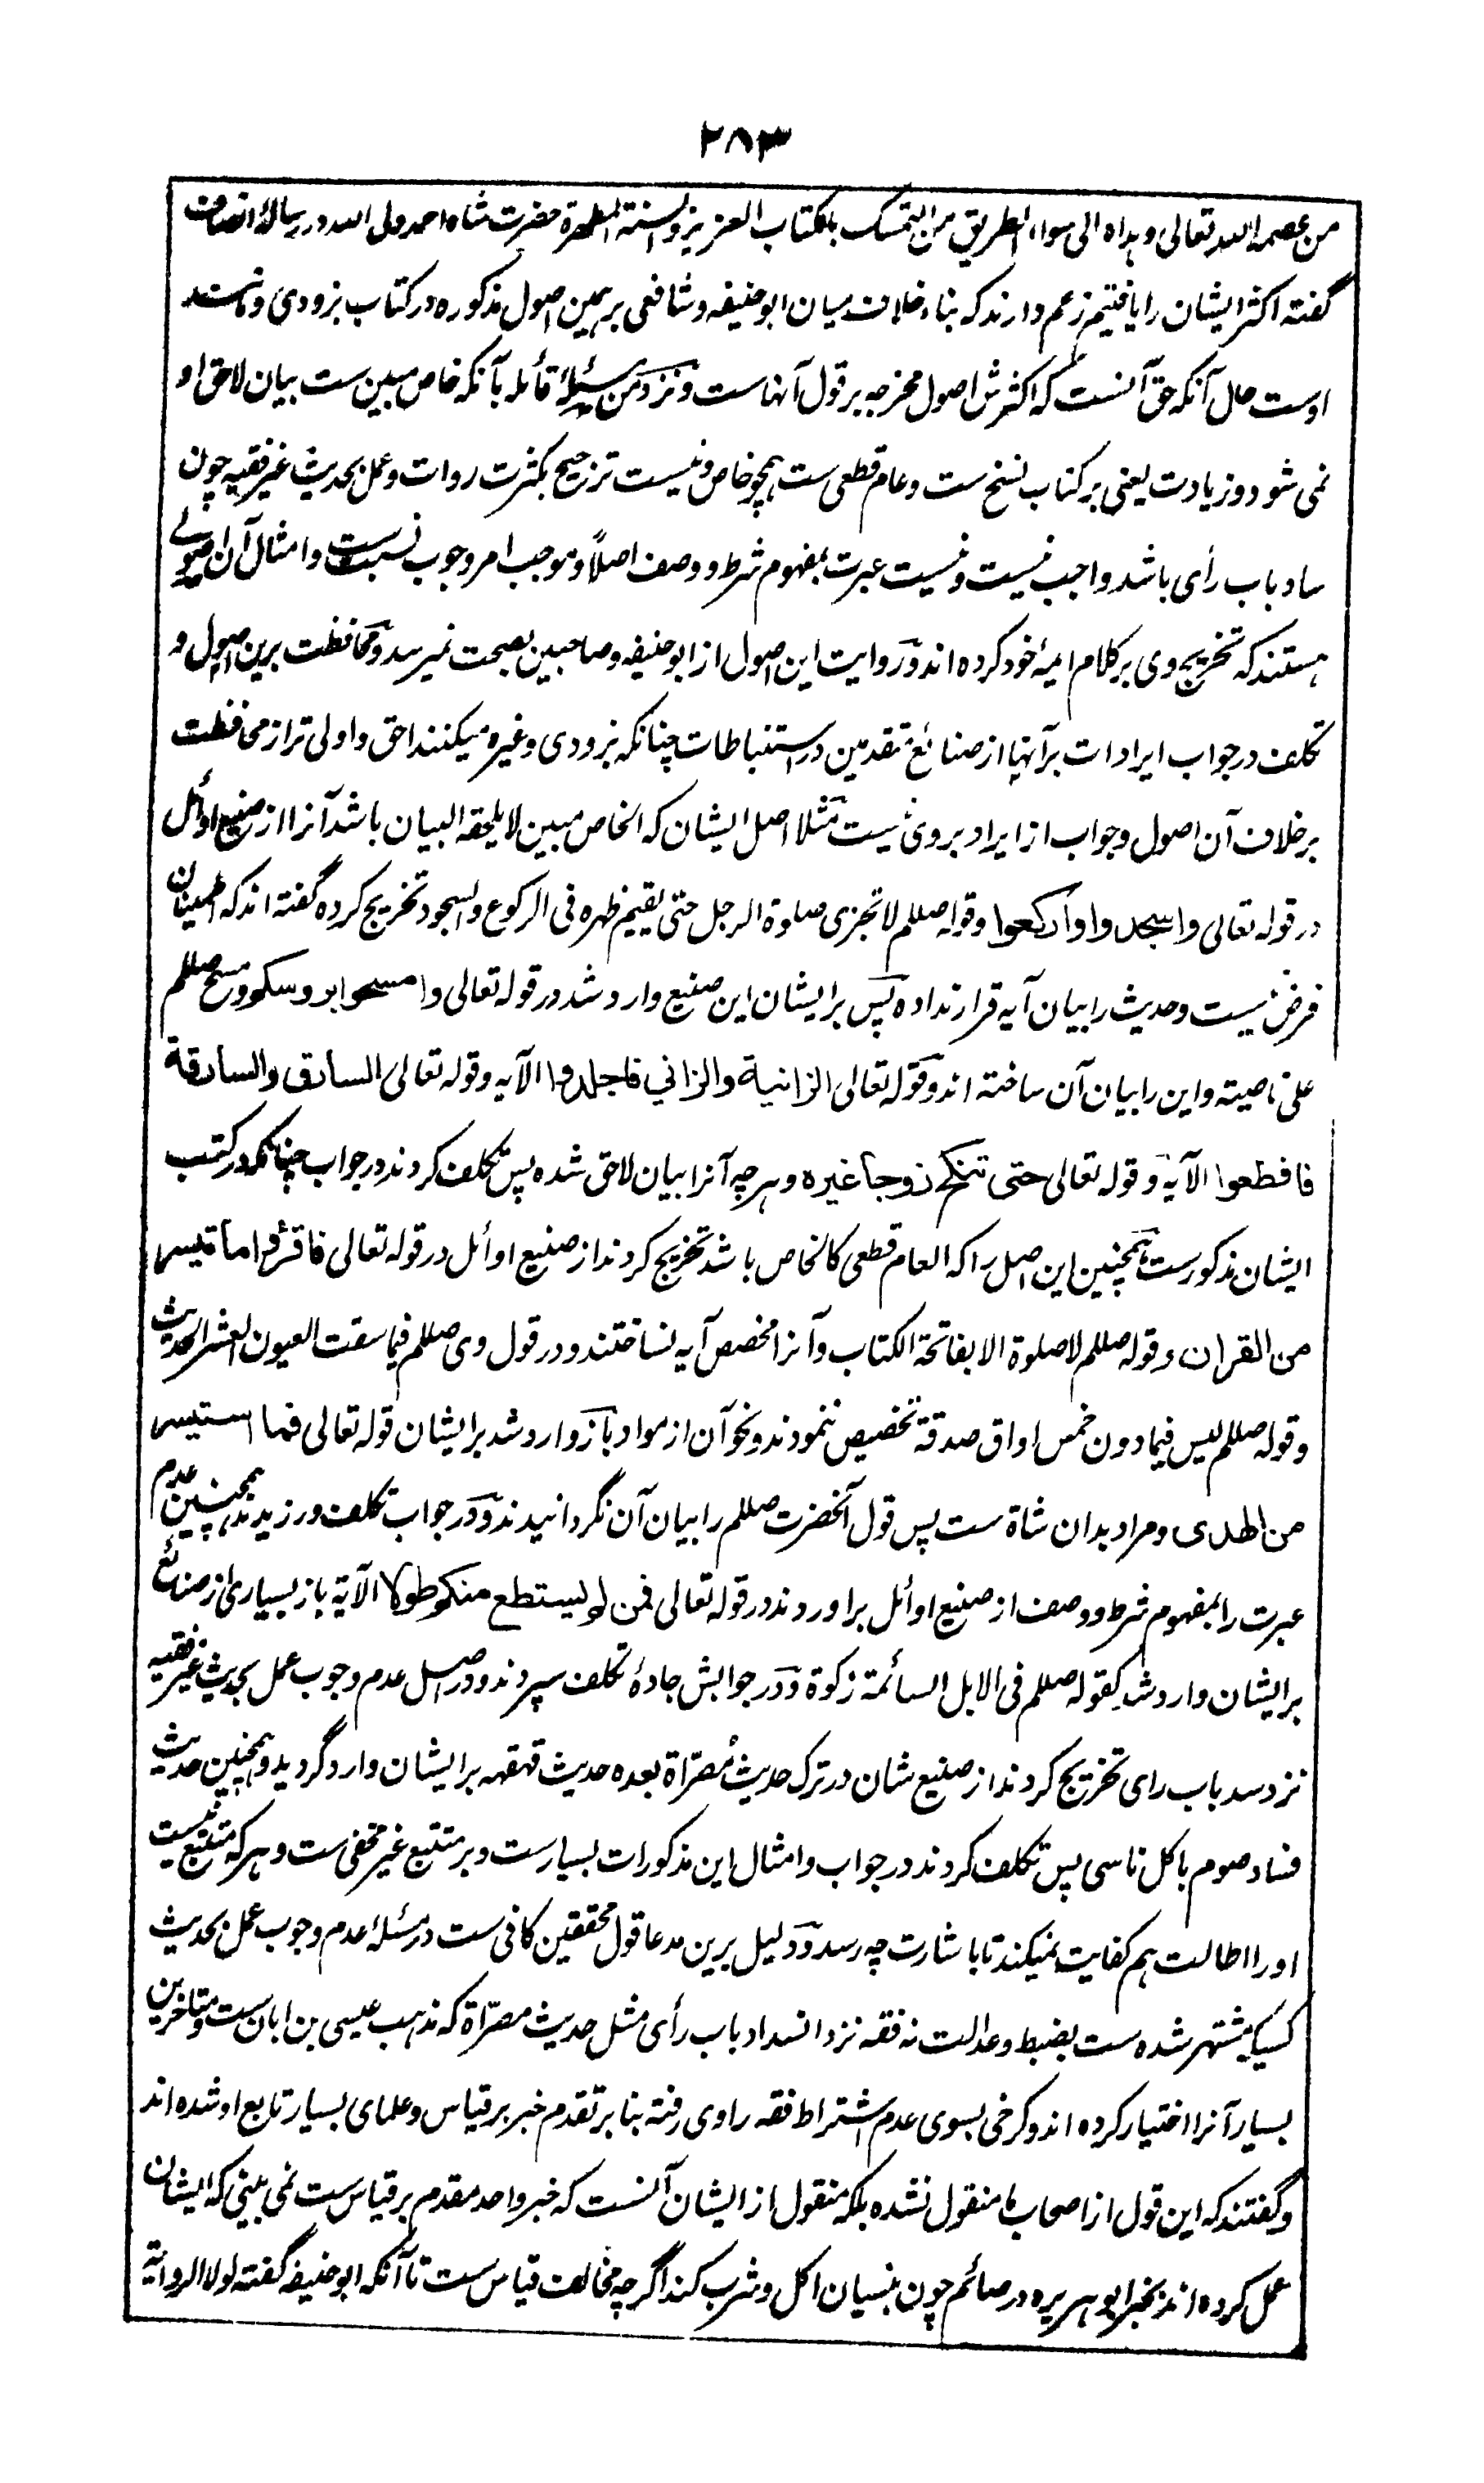 ۲۸۳
من عصمه الله تعالی وہداہ الی سواء الطریق من التمسک بالکتاب العزیز والسنۃ المطہرۃ حضرت شاہ احمد ولی اللہ در رسالۂ انصاف
گفتہ اکثر ایشان را یافتیم زعم دارند کہ بناء خلاف میان ابوحنیفہ وشافعی بر ہمین اصول مذکورہ در کتاب بزودی ومانند
اوست حال آنکہ حق آنست کہ اکثرش اصول مخرجہ بر قول آنہاست ونزد من مسئلۂ قائلہ بآنکہ خاص مبین ست بیان لاحق او
نمی شود وزیادت یعنی بر کتاب نسخ ست وعام قطعی ست ہمچو خاص ونیست ترجیح بکثرت روات وعمل بحدیث غیر فقیہ چون
ساد باب رأی باشد واجب نیست ونیست عبرت بمفہوم شرط ووصف اصلاً وموجب امر وجوب ست وامثال آن اصولی
ہستند کہ تخریج وی بر کلام ایمۂ خود کردہ اند وروایت این اصول از ابوحنیفہ وصاحبین بصحت نمیرسد ومحافظت برین اصول و
تکلف در جواب ایرادات بر آنہا از صنائع متقدمین در استنباطات چنانکہ بزودی وغیرہ میکنند احق واولی تر از محافظت
بر خلاف آن اصول وجواب از ایراد بروی نیست مثلا اصل ایشان کہ الخاص مبین لا یلحقہ البیان باشد آنرا از صنیع اوائل
در قولہ تعالی واسجدوا وارکعوا وقولہ صللم لا تجزی صلوۃ الرجل حتی یقیم ظہرہ فی الرکوع والسجود تخریج کردہ گفتہ اند کہ اطمینان
فرض نیست وحدیث را بیان آیہ قرار ندادہ پس بر ایشان این صنیع وارد شد در قولہ تعالی وامسحوا بروسکم ومسح صللم
علی ناصیتہ واین را بیان آن ساختہ اند وقولہ تعالی الزانیۃ والزانی فاجلدوا الآیہ وقولہ تعالی السارق والسارقۃ
فاقطعوا الآیۃ وقولہ تعالی حتی تنکح زوجا غیرہ وہرچہ آنرا بیان لاحق شدہ پس تکلف کردند در جواب چنانکہ در کتب
ایشان مذکور ست وہمچنین این اصل را کہ العام قطعی کالخاص باشد تخریج کردند از صنیع اوائل در قولہ تعالی فاقرؤا ما تیسر
من القران وقولہ صللم لا صلوۃ الا بفاتحۃ الکتاب وآنرا مخصص آیہ نساختند ودر قول وی صللم فیما سقت العیون العشر الحدیث
وقولہ صللم لیس فیما دون خمس اواق صدقۃ تخصیص ننمودند ونحو آن از مواد باز وارد شد بر ایشان قولہ تعالی فما استیسر
من الهدی ومراد بدان شاۃ ست پس قول آنحضرت صللم را بیان آن نگردانیدند ودر جواب تکلف ورزیدند وہمچنین عدم
عبرت را بمفہوم شرط ووصف از صنیع اوائل براوردند در قولہ تعالی فمن لم یستطع منکم طولا الآیۃ باز بسیاری از صنائع
بر ایشان وارد شد کقولہ صللم فی الابل السائمۃ زکوۃ ودر جوابش جادۂ تکلف سپردند ودر اصل عدم وجوب عمل بحدیث غیر فقیہ
نزد سد باب رای تخریج کردند از صنیع شان در ترک حدیث مصرّاۃ بعدہ حدیث قہقہہ بر ایشان وارد گردید وہمچنین حدیث
فساد صوم باکل ناسی پس تکلف کردند در جواب وامثال این مذکورات بسیار ست وبر متتبع غیر مخفی ست وہر کہ متتبع نیست
اورا اطالت ہم کفایت نمیکند تا باشارت چہ رسد ودلیل برین مدعا قول محققین کافی ست در مسئلۂ عدم وجوب عمل بحدیث
کسیکہ مشتہر شدہ ست بضبط وعدالت نہ فقہ نزد انسداد باب رأی مثل حدیث مصرّاۃ کہ مذہب عیسی بن ابان ست ومتاخرین
بسیار آنرا اختیار کردہ اند وکرخی بسوی عدم اشتراط فقہ راوی رفتہ بنا بر تقدم خبر بر قیاس وعلمای بسیار تابع او شدہ اند
وگفتند کہ این قول از اصحاب ما منقول نشدہ بلکہ منقول از ایشان آنست کہ خبر واحد مقدم بر قیاس ست نمی بینی کہ ایشان
عمل کردہ اند بخبر ابو ہریرہ در صائم چون بنسیان اکل وشرب کند اگرچہ مخالف قیاس ست تا آنکہ ابوحنیفہ گفتہ لولا الروایۃ